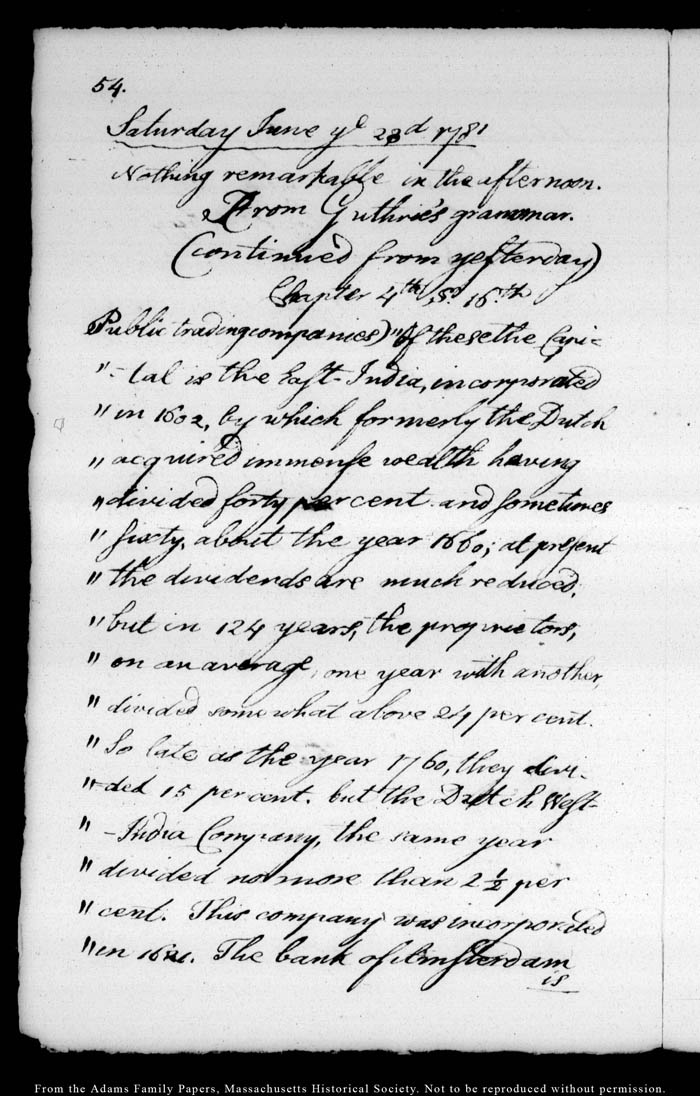 54.
Saturday June yᵉ 23ᵈ 1781
Nothing remarkable in the afternoon.
From Guthrie's grammar.
(continued from yesterday)
Chapter 4ᵗʰ 16ᵗʰ
Public trading companies) "Of these the Capi=
"-tal is the East-India, incorporated
"in 1602, by which formerly the Dutch
"acquired immense wealth having
"divided forty per cent. and sometimes
"sixty, about the year 1660; at present
"the dividends are much reduced;
"but in 124 years, the proprietors,
"on an average, one year with another,
"divided somewhat above 24 per cent.
"So late as the year 1760, they divi-
"-ded 15 per cent. but the Dutch West-
"-India Company, the same year
"divided no more than 2 ½ per
"cent. This company was incorporated
"in 1621. The bank of Amsterdam
is
From the Adams Family Papers, Massachusetts Historical Society. Not to be reproduced without permission.